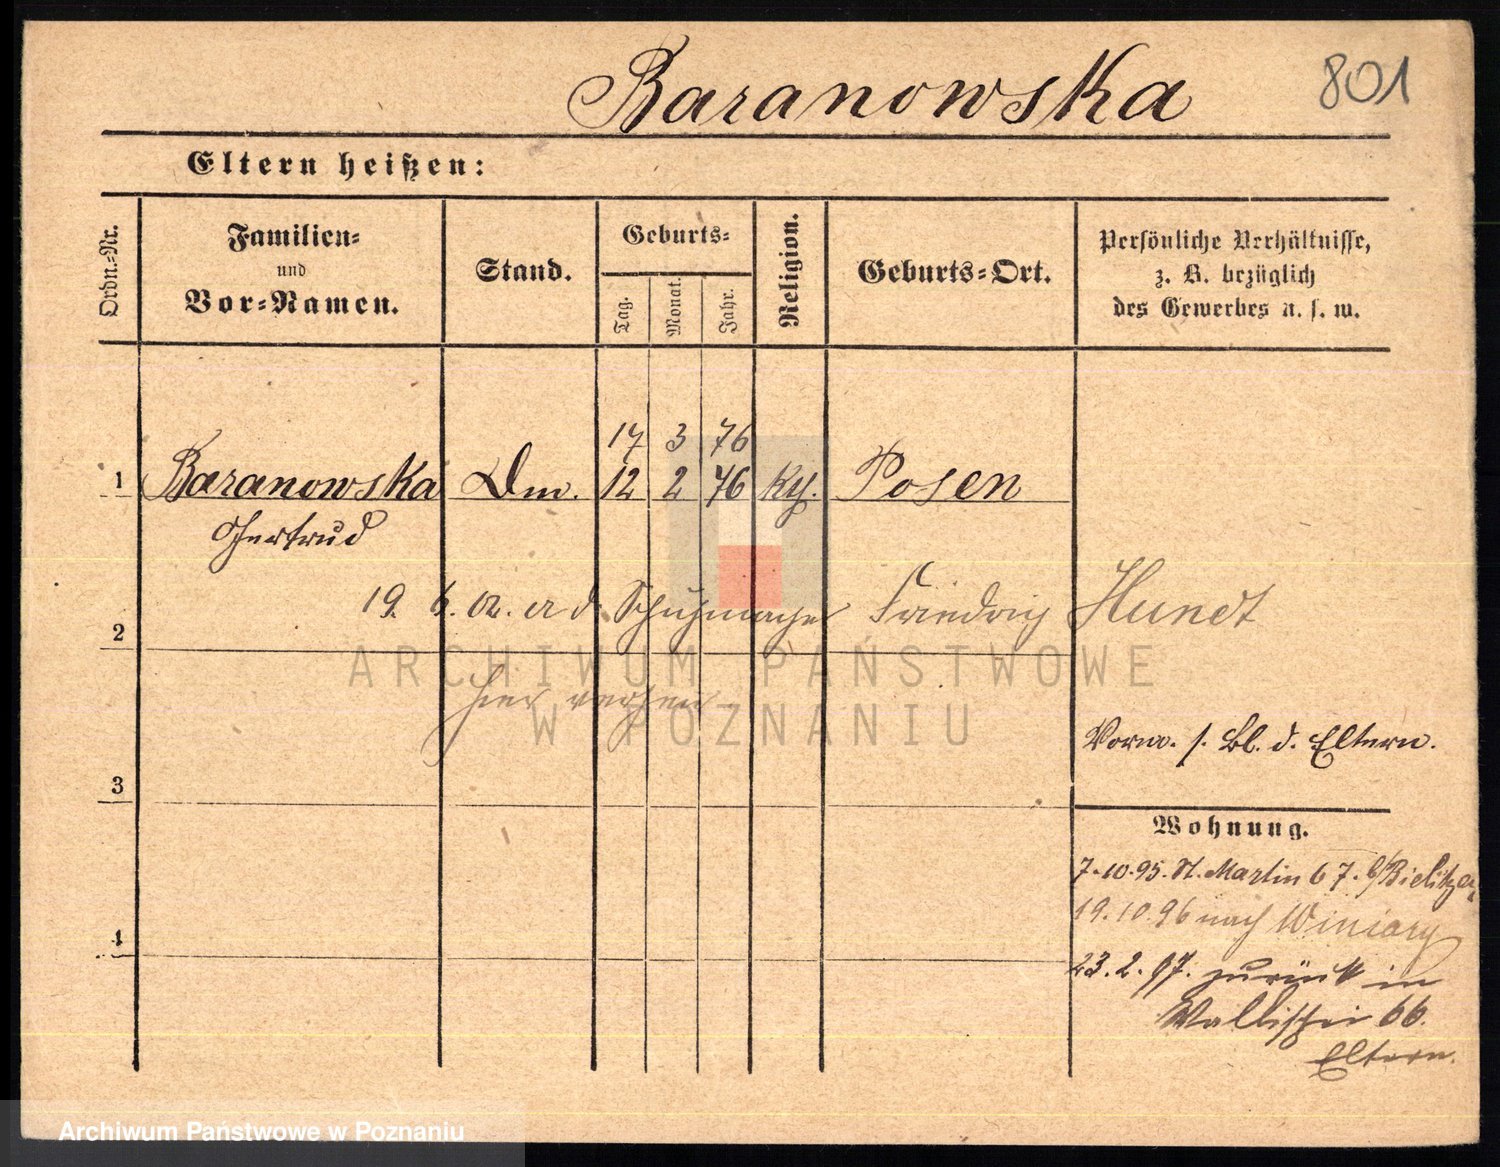 Baranowska
801
Eltern heißen:
Ordn.-Nr.
Familien-
und
Vor-Namen.
Stand.
Geburts-
Tag.
Monat.
Jahr.
Religion.
Geburts-Ort.
Persönliche Verhältnisse,
z. B. bezüglich
des Gewerbes u. s. w.
17 3 76
1 Baranowska 12 2 76 Posen
Gertrud
19. 6. 02. d. Schuhmacher Friedrich Hundt
2
ARCHIWUM PAŃSTWOWE
hier
W POZNANIU
Vorm. s. Bl. d. Eltern.
3
Wohnung.
7.10.95. St. Martin 67. b/Bielitzer
19.10.96 nach Winiary
4
23.2.97. zurück in
Wallischei 66.
Eltern.
Archiwum Państwowe w Poznaniu